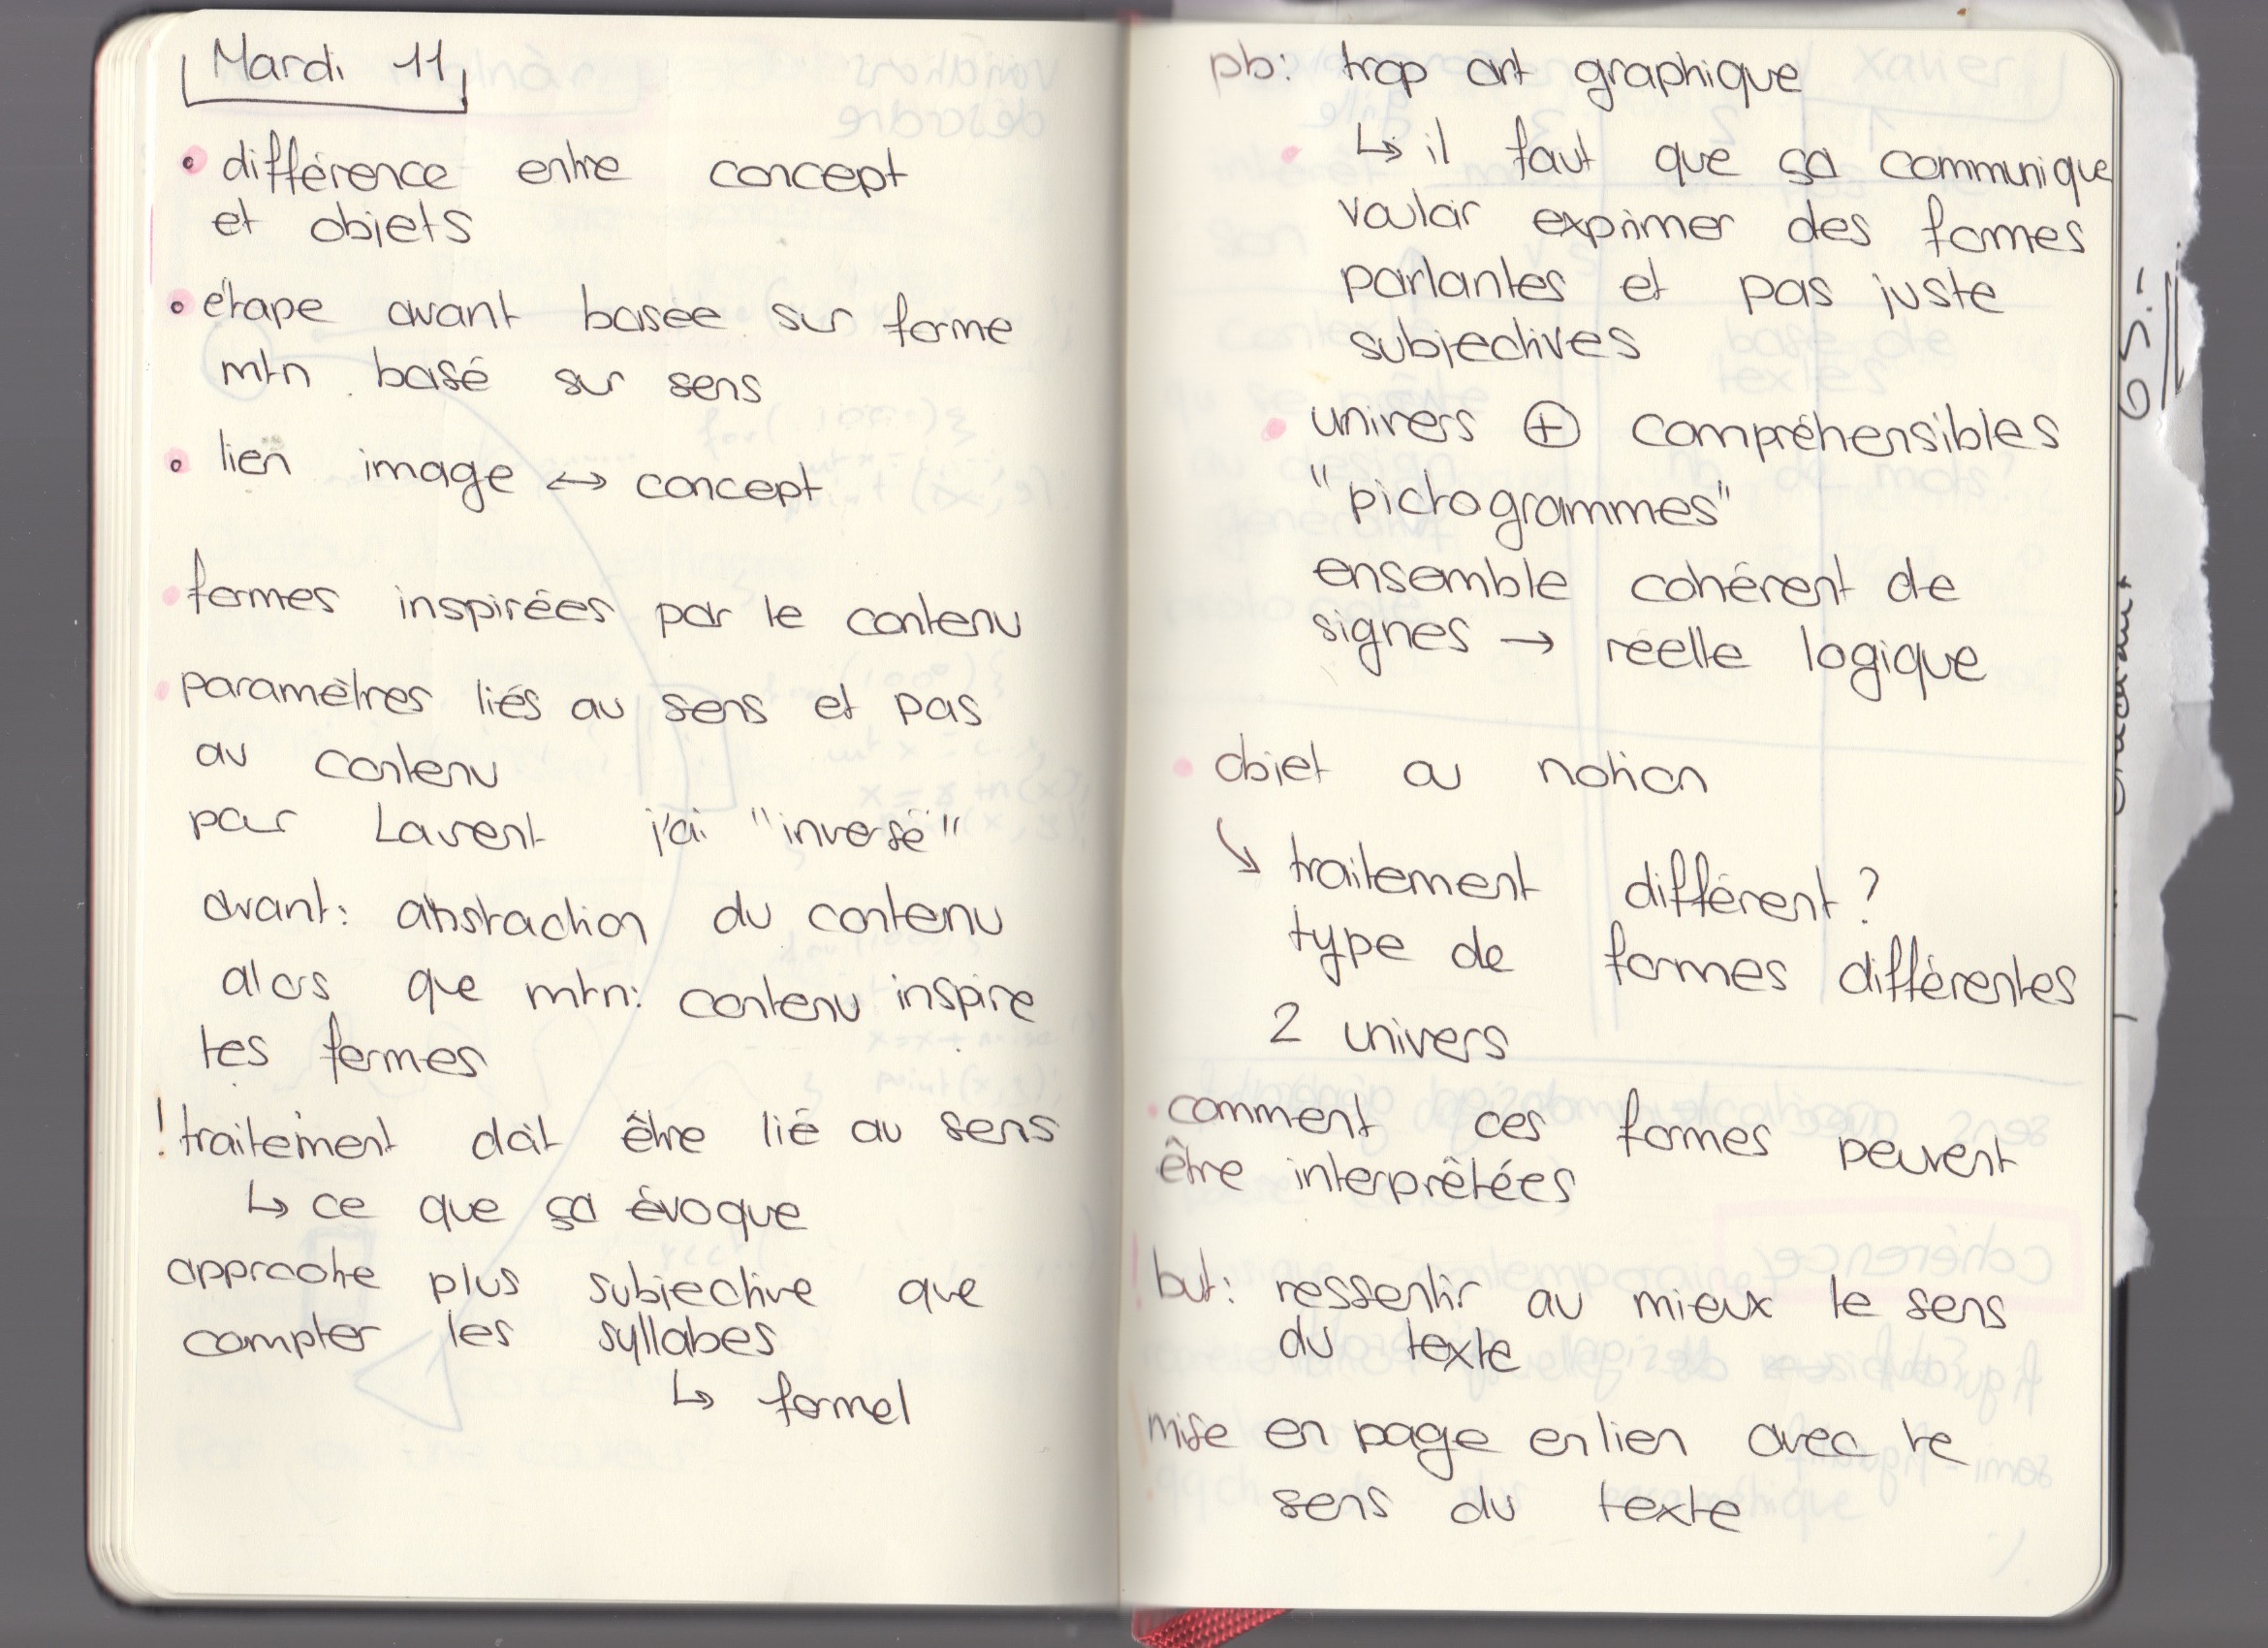 Mardi 11
• différence entre concept
et objets
• étape avant basée sur forme
mtn basé sur sens
• lien image ↔ concept
• formes inspirées par le contenu
• paramètres liés au sens et pas
au contenu
par Laurent j'ai "inversé"
avant: abstraction du contenu
alors que mtn: contenu inspire
les formes
! traitement doit être lié au sens
↳ ce que ça évoque
approche plus subjective que
compter les syllabes
↳ formel
pb: trop art graphique
• ↳ il faut que ça communique
vouloir exprimer des formes
parlantes et pas juste
subjectives
• univers ⊕ compréhensibles
"pictogrammes"
ensemble cohérent de
signes → réelle logique
• objet ou notion
↘ traitement différent?
type de formes différentes
2 univers
• comment ces formes peuvent
être interprêtées
! but: ressentir au mieux le sens
du texte
mise en page en lien avec le
sens du texte
65.-